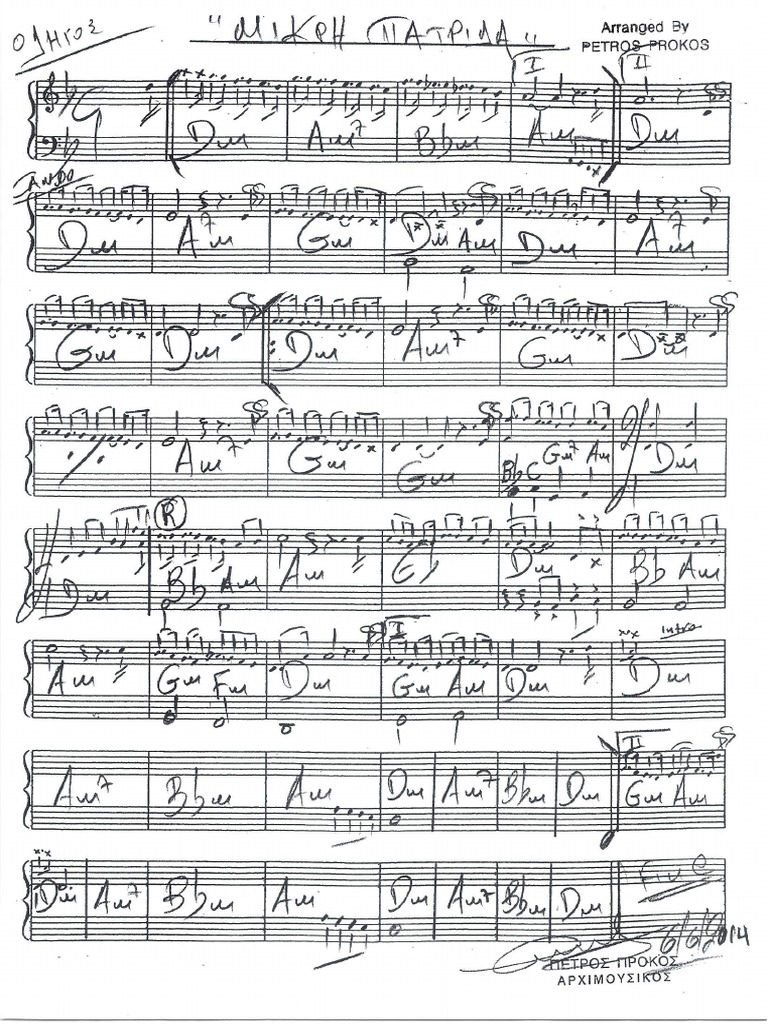 ΟΔΗΓΟΣ "ΜΙΚΡΗ ΠΑΤΡΙΔΑ" Arranged By
PETROS PROKOS
I II
Dm Am7 Bbm Am Dm
Dm Am7 Gm Dm Am Dm Am7
Gm Dm Dm Am7 Gm Dm
Am7 Gm Gm Bb C Gm7 Am Dm
R
Dm Bb Am Am Dm Bb Am
I Intro
Am Gm Fm Dm Gm Am Dm Dm
II
Am7 Bbm Am Dm Am7 Bbm Dm Gm Am
Dm Am7 Bbm Am Dm Am7 Bbm Dm Fine
6/6/2014
ΠΕΤΡΟΣ ΠΡΟΚΟΣ
ΑΡΧΙΜΟΥΣΙΚΟΣ